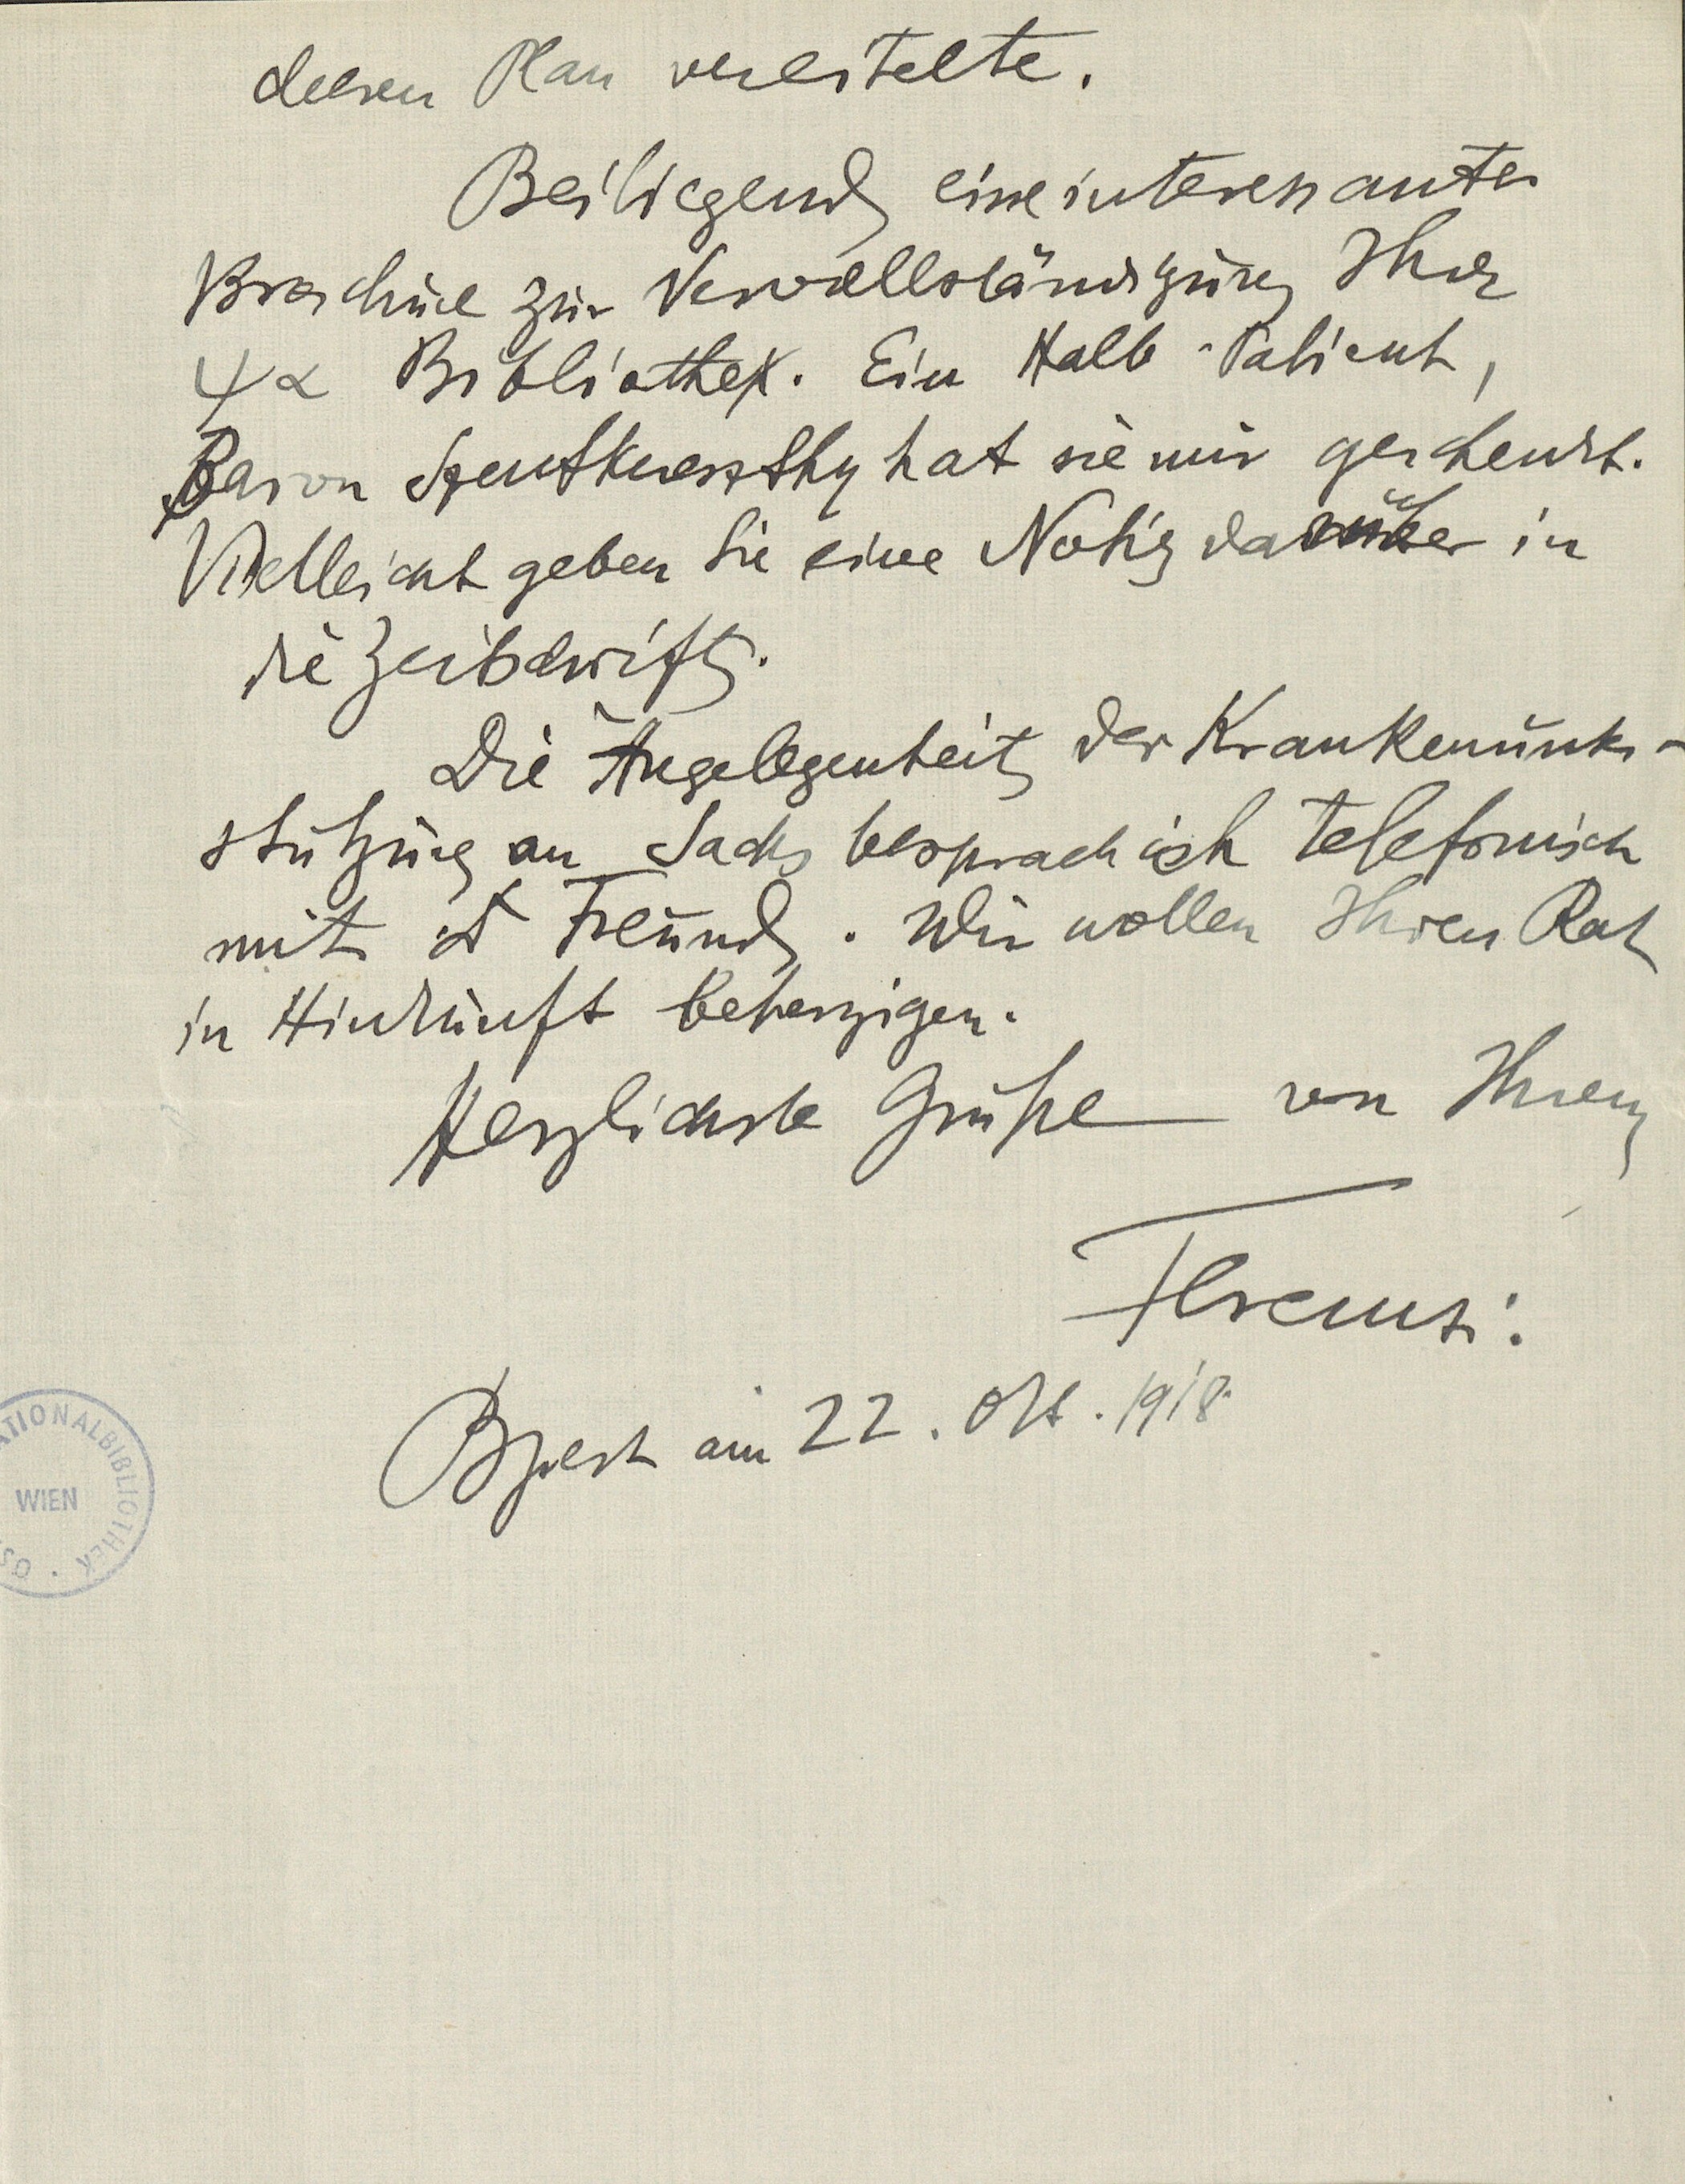 dessen Plan vereitelte.
Beiliegend eine interessante
Broschüre zur Vervollständigung Ihrer
ψα Bibliothek. Ein Halb-Patient,
Baron Szentkereszthy hat sie mir geschenkt.
Vielleicht geben Sie eine Notiz darüber in
die Zeitschrift.
Die Angelegenheit der Krankenunter-
stützung an Sachs besprach ich telefonisch
mit Freund. Wir wollen Ihren Rat
in Hinkunft beherzigen.
Herzlichste Grüße von Ihrem
Ferenczi.
Bpest am 22. Okt. 1918.
ATIONALBIBLIOTHEK
WIEN